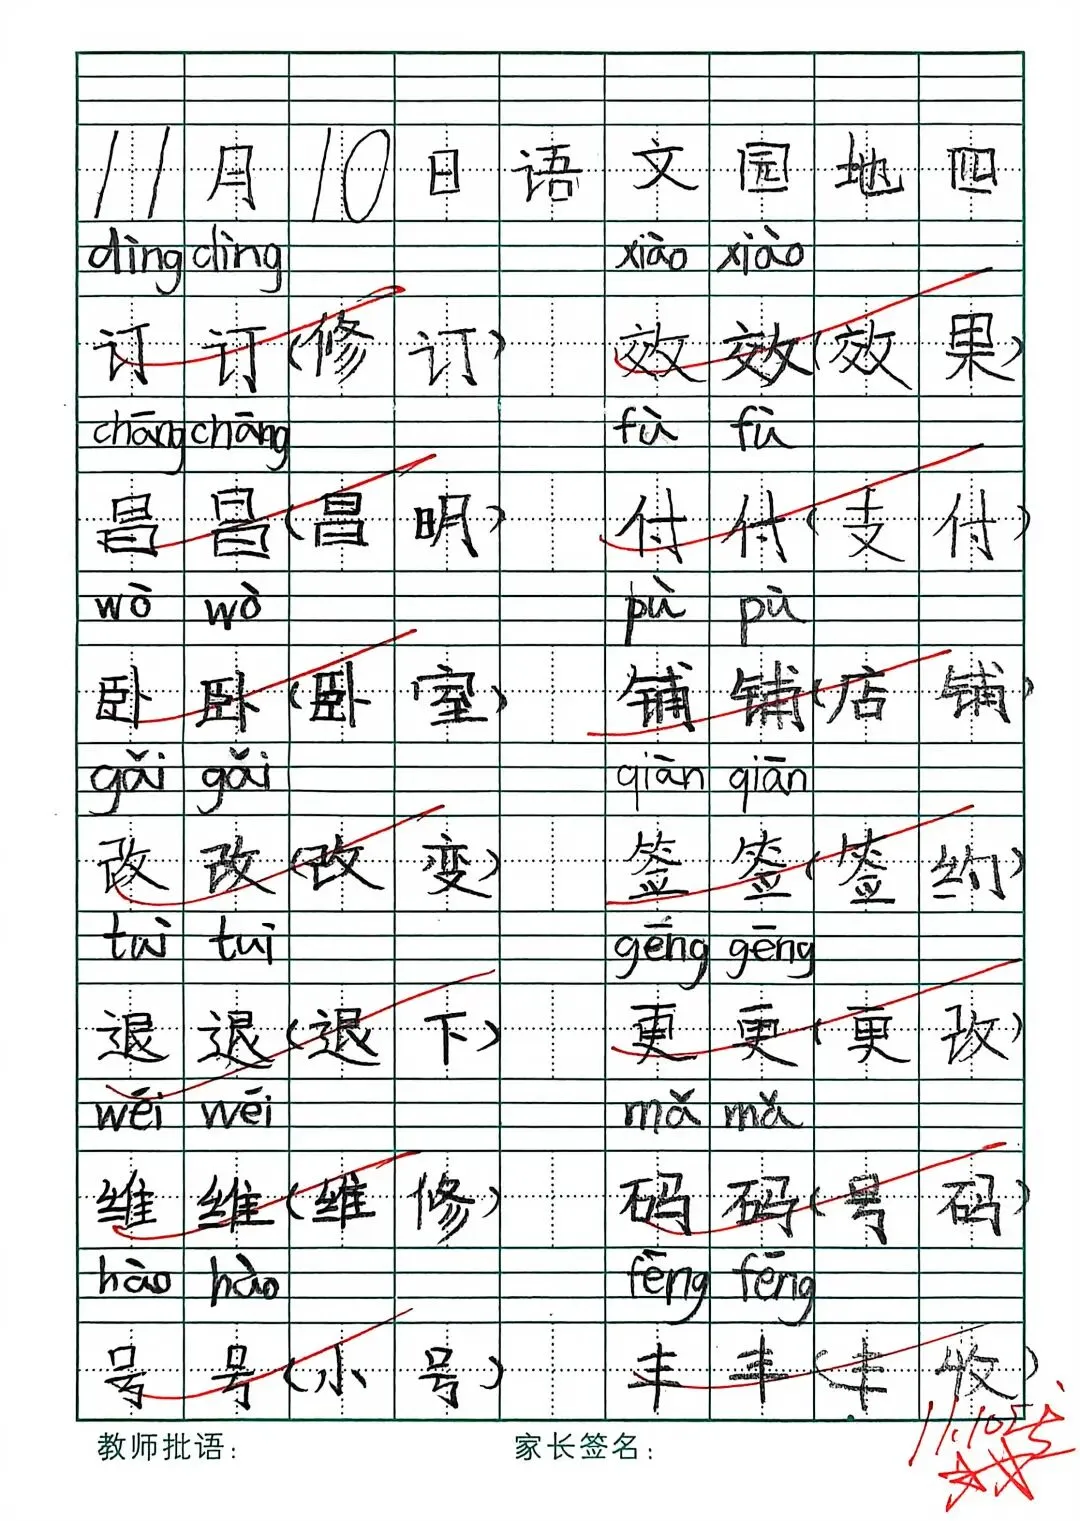 11月10日语文园地四
dìng dìng xiào xiào
订订(修订) 效效(效果)
chāng chāng fù fù
昌昌(昌明) 付付(支付)
wò wò pù pù
卧卧(卧室) 铺铺(店铺)
gǎi gǎi qiān qiān
改改(改变) 签签(签约)
tuì tuì gēng gēng
退退(退下) 更更(更改)
wéi wéi mǎ mǎ
维维(维修) 码码(号码)
hào hào fēng fēng
号号(小号) 丰丰(丰收)
教师批语: 家长签名:
11.10